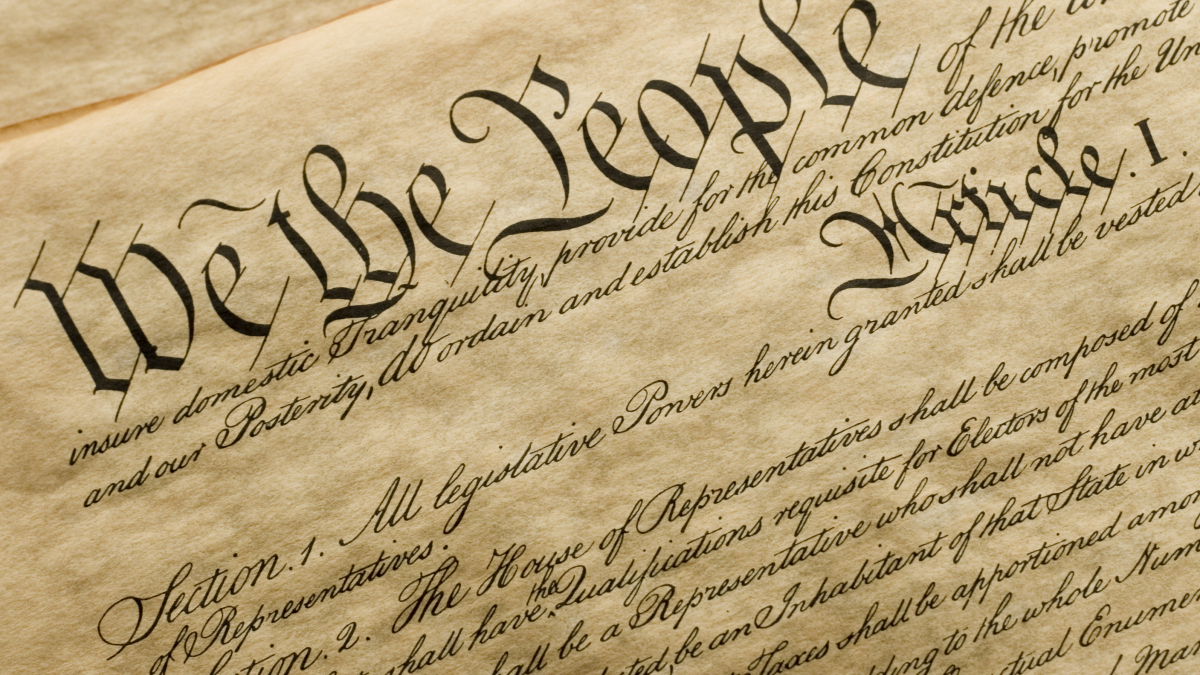 We the People of the
insure domestic Tranquility, provide for the common defence, promote
and our Posterity, do ordain and establish this Constitution for the
Article. I.
Section. 1. All legislative Powers herein granted shall be vested
of Representatives.
2. The House of Representatives shall be composed of
shall have the Qualifications requisite for Electors of the most
be a Representative who shall not have
be an Inhabitant of that State in
Taxes shall be apportioned
to the whole